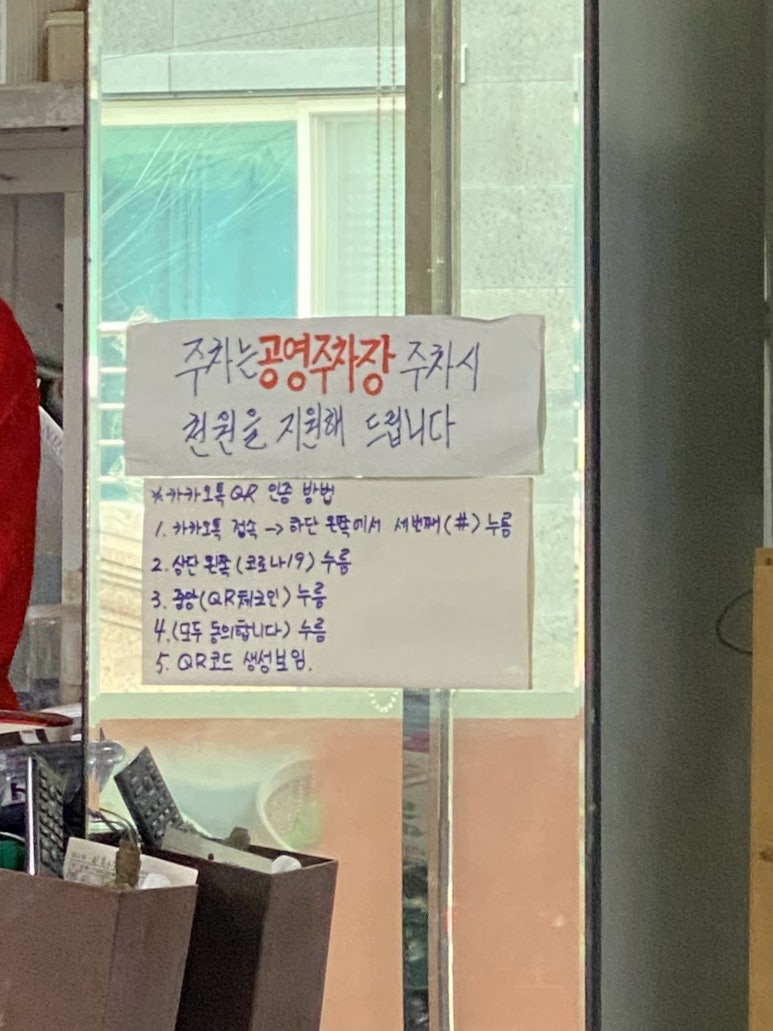 주차는 공영주차장 주차시
천원을 지원해 드립니다
※카카오톡 QR 인증 방법
1. 카카오톡 접속 → 하단 왼쪽에서 세번째(#) 누름
2. 상단 왼쪽(코로나19) 누름
3. 중앙(QR체크인) 누름
4. (모두 동의합니다) 누름
5. QR코드 생성보임.